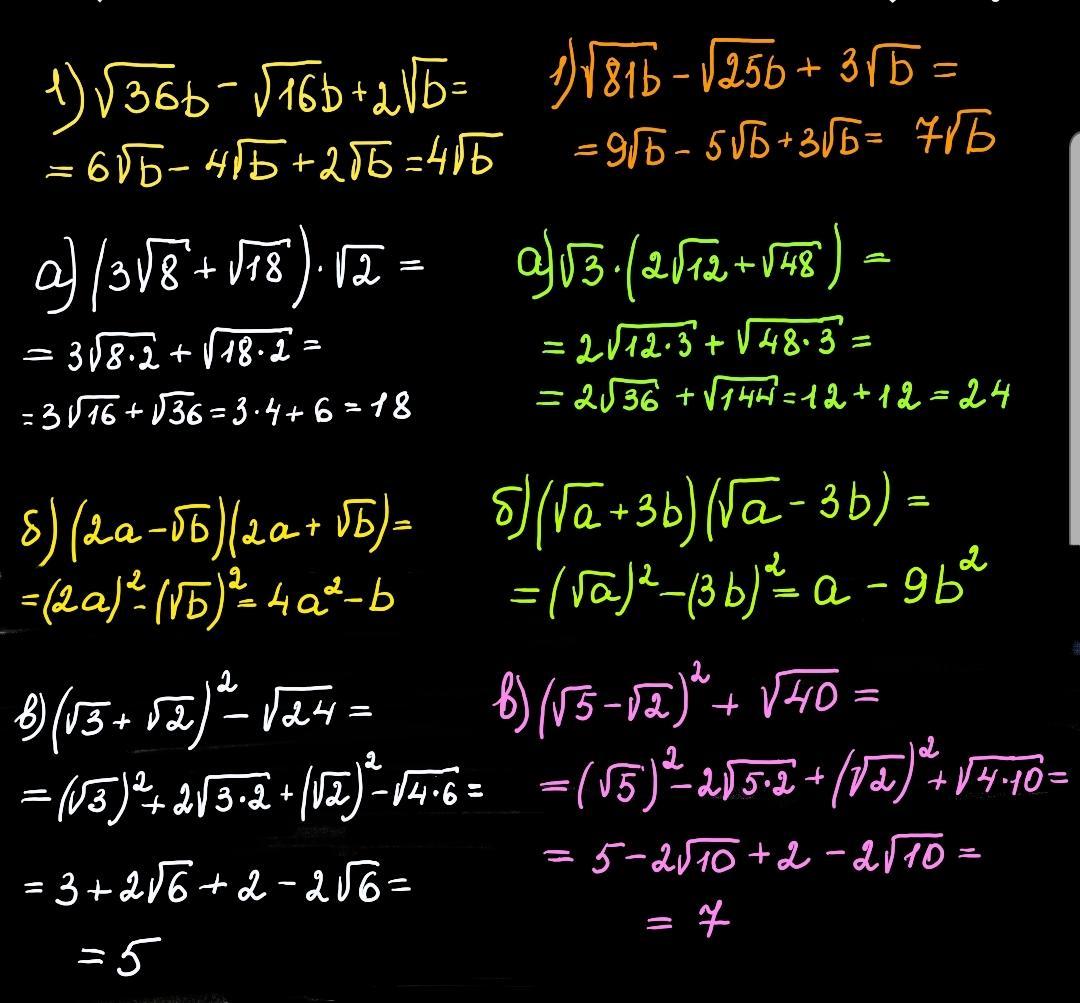 1) √36b - √16b + 2√b =
= 6√b - 4√b + 2√b = 4√b
1) √81b - √25b + 3√b =
= 9√b - 5√b + 3√b = 7√b
а) (3√8 + √18) · √2 =
= 3√8·2 + √18·2 =
= 3√16 + √36 = 3·4 + 6 = 18
а) √3 · (2√12 + √48) =
= 2√12·3 + √48·3 =
= 2√36 + √144 = 12 + 12 = 24
б) (2a - √b)(2a + √b) =
= (2a)² - (√b)² = 4a² - b
б) (√a + 3b)(√a - 3b) =
= (√a)² - (3b)² = a - 9b²
в) (√3 + √2)² - √24 =
= (√3)² + 2√3·2 + (√2)² - √4·6 =
= 3 + 2√6 + 2 - 2√6 =
= 5
в) (√5 - √2)² + √40 =
= (√5)² - 2√5·2 + (√2)² + √4·10 =
= 5 - 2√10 + 2 - 2√10 =
= 7